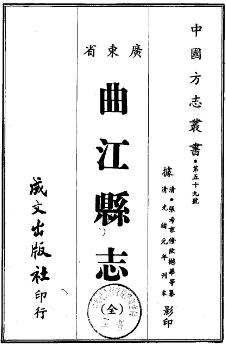 中國方志叢書·第五十九號
據清·張希京修歐樾華等纂
清光緒元年刊本影印
廣東省
曲江縣志
(全)
成文出版社印行